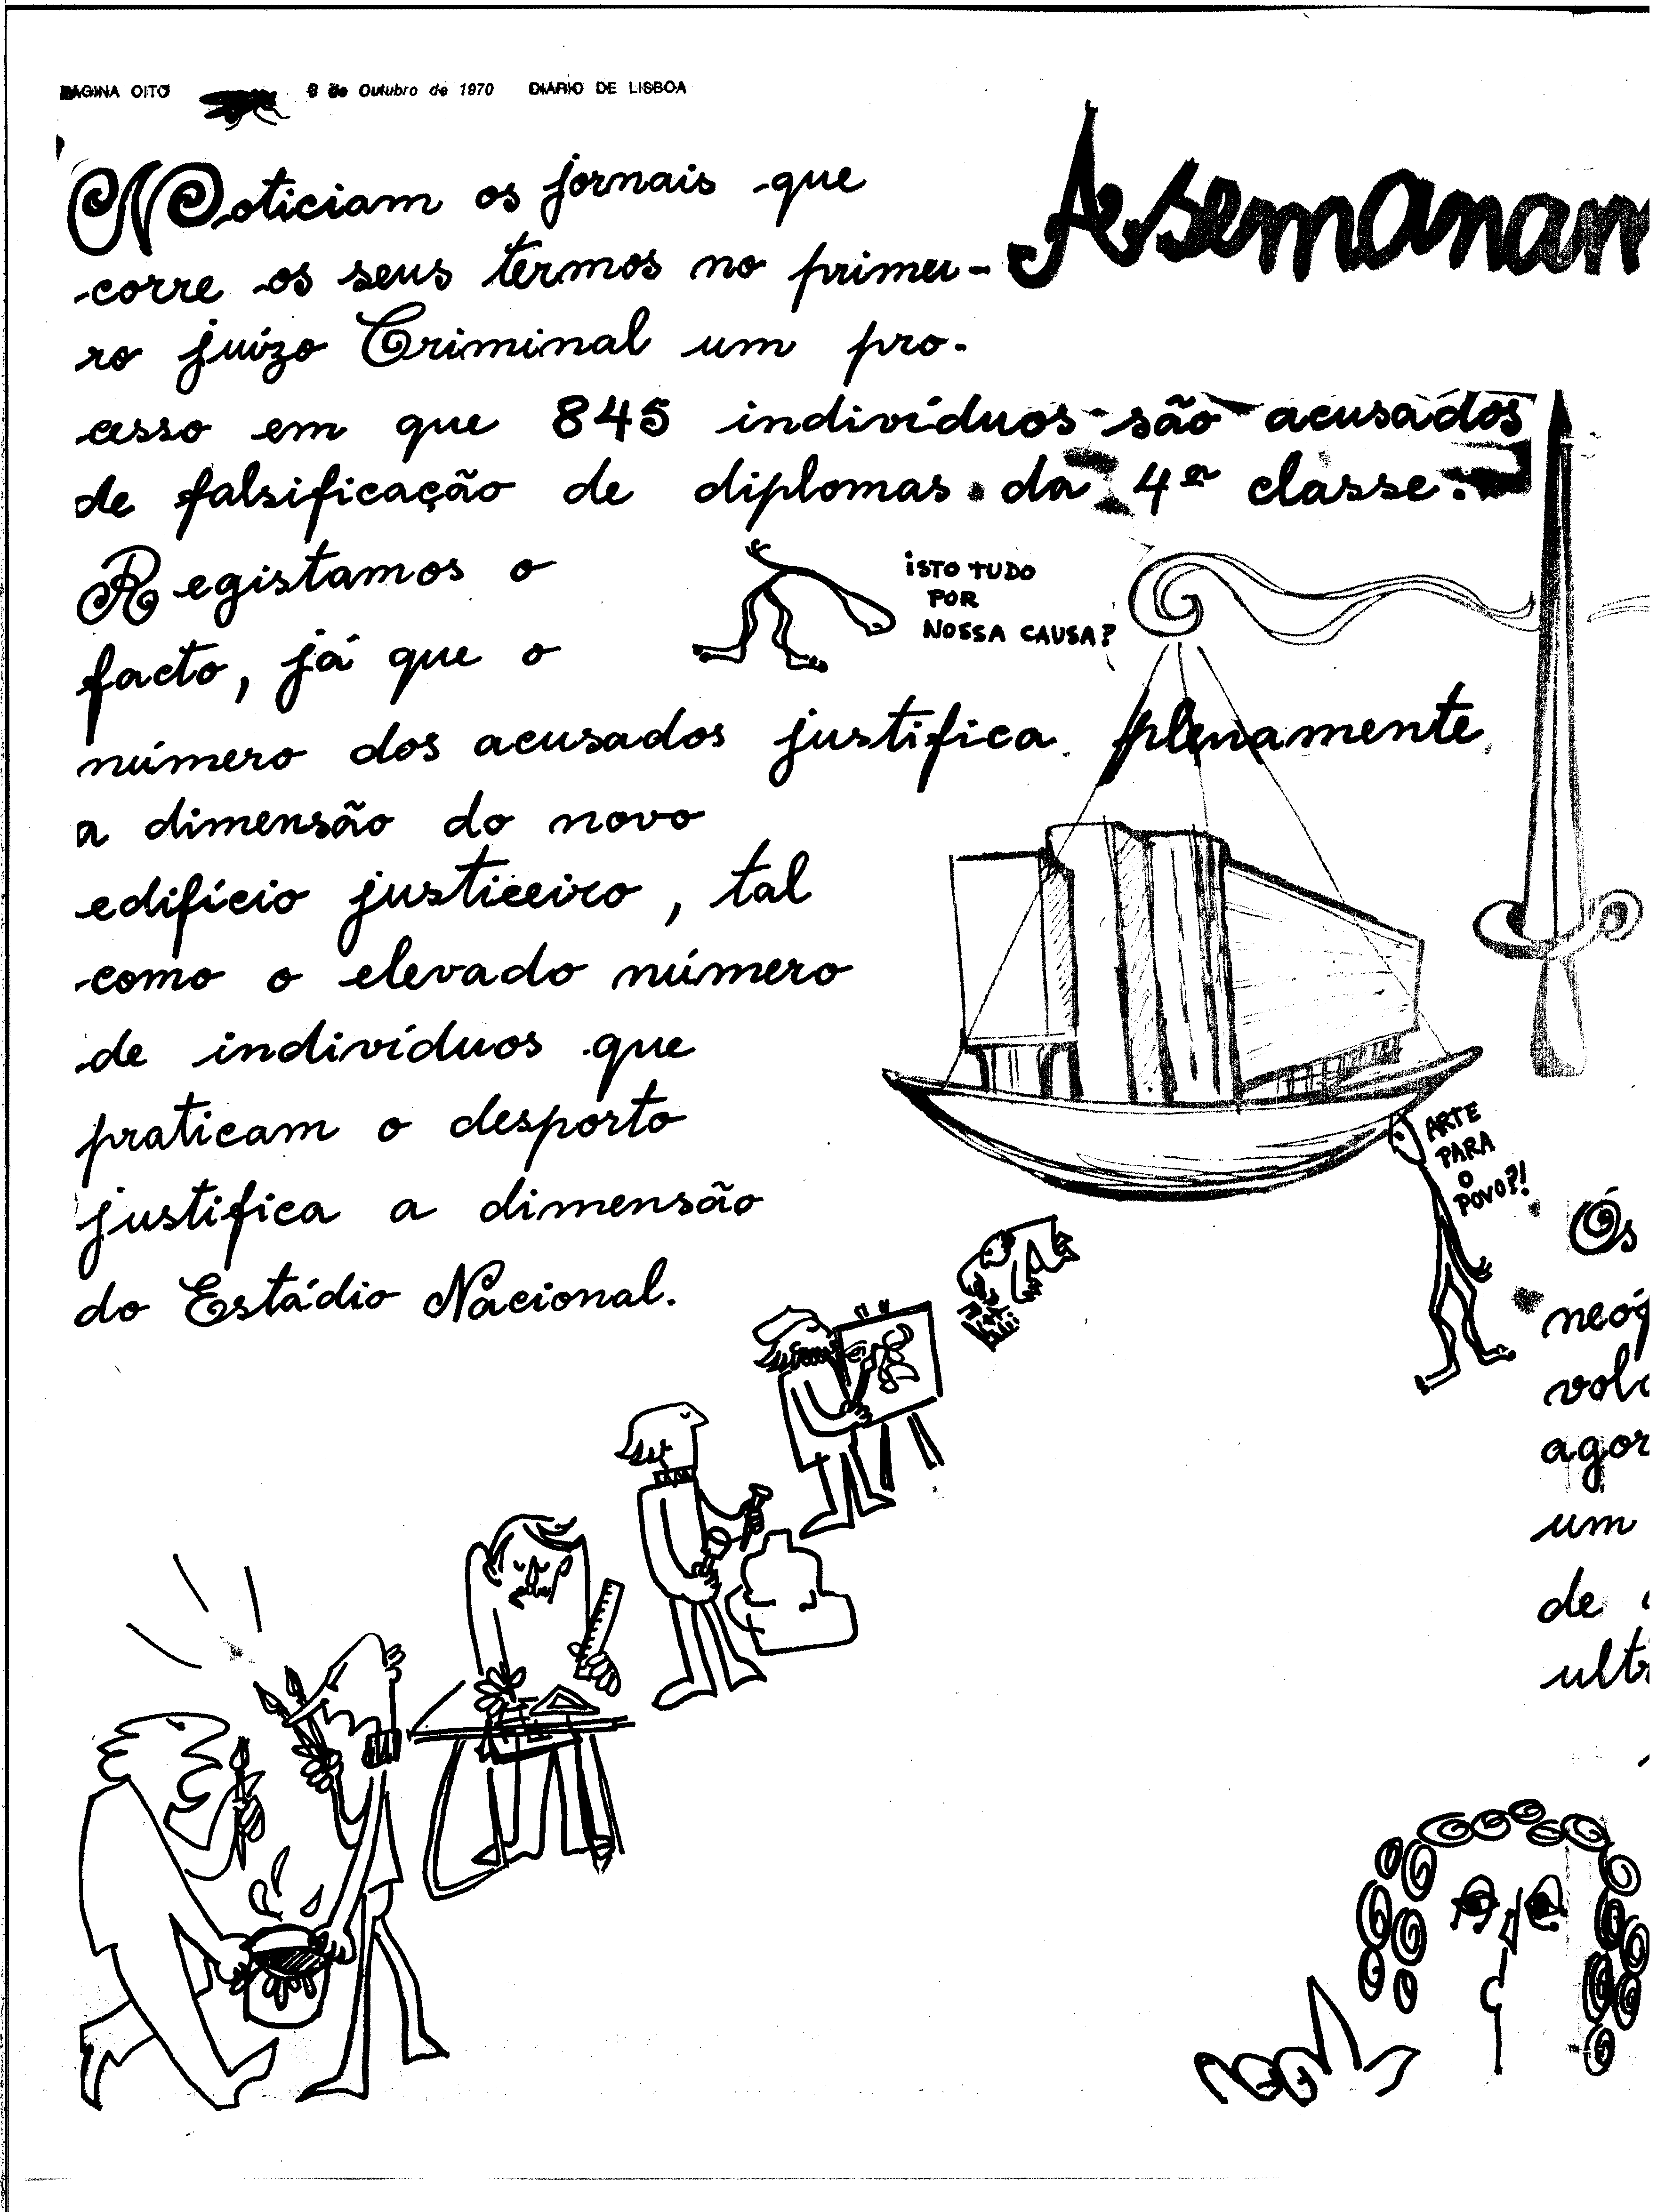 PÁGINA OITO
de Outubro de 1970
DIÁRIO DE LISBOA
Asemanam
Noticiam os jornais que
corre os seus termos no primei-
ro juízo Criminal um pro-
cesso em que 845 indivíduos são acusados
de falsificação de diplomas da 4ª classe.
Registamos o
facto, já que o
ISTO TUDO
POR
NOSSA CAUSA?
número dos acusados justifica plenamente
a dimensão do novo
edifício justiceiro, tal
como o elevado número
de indivíduos que
praticam o desporto
justifica a dimensão
do Estádio Nacional.
ARTE
PARA
O
POVO?!
Os
neóf
volc
agor
um
de
ult